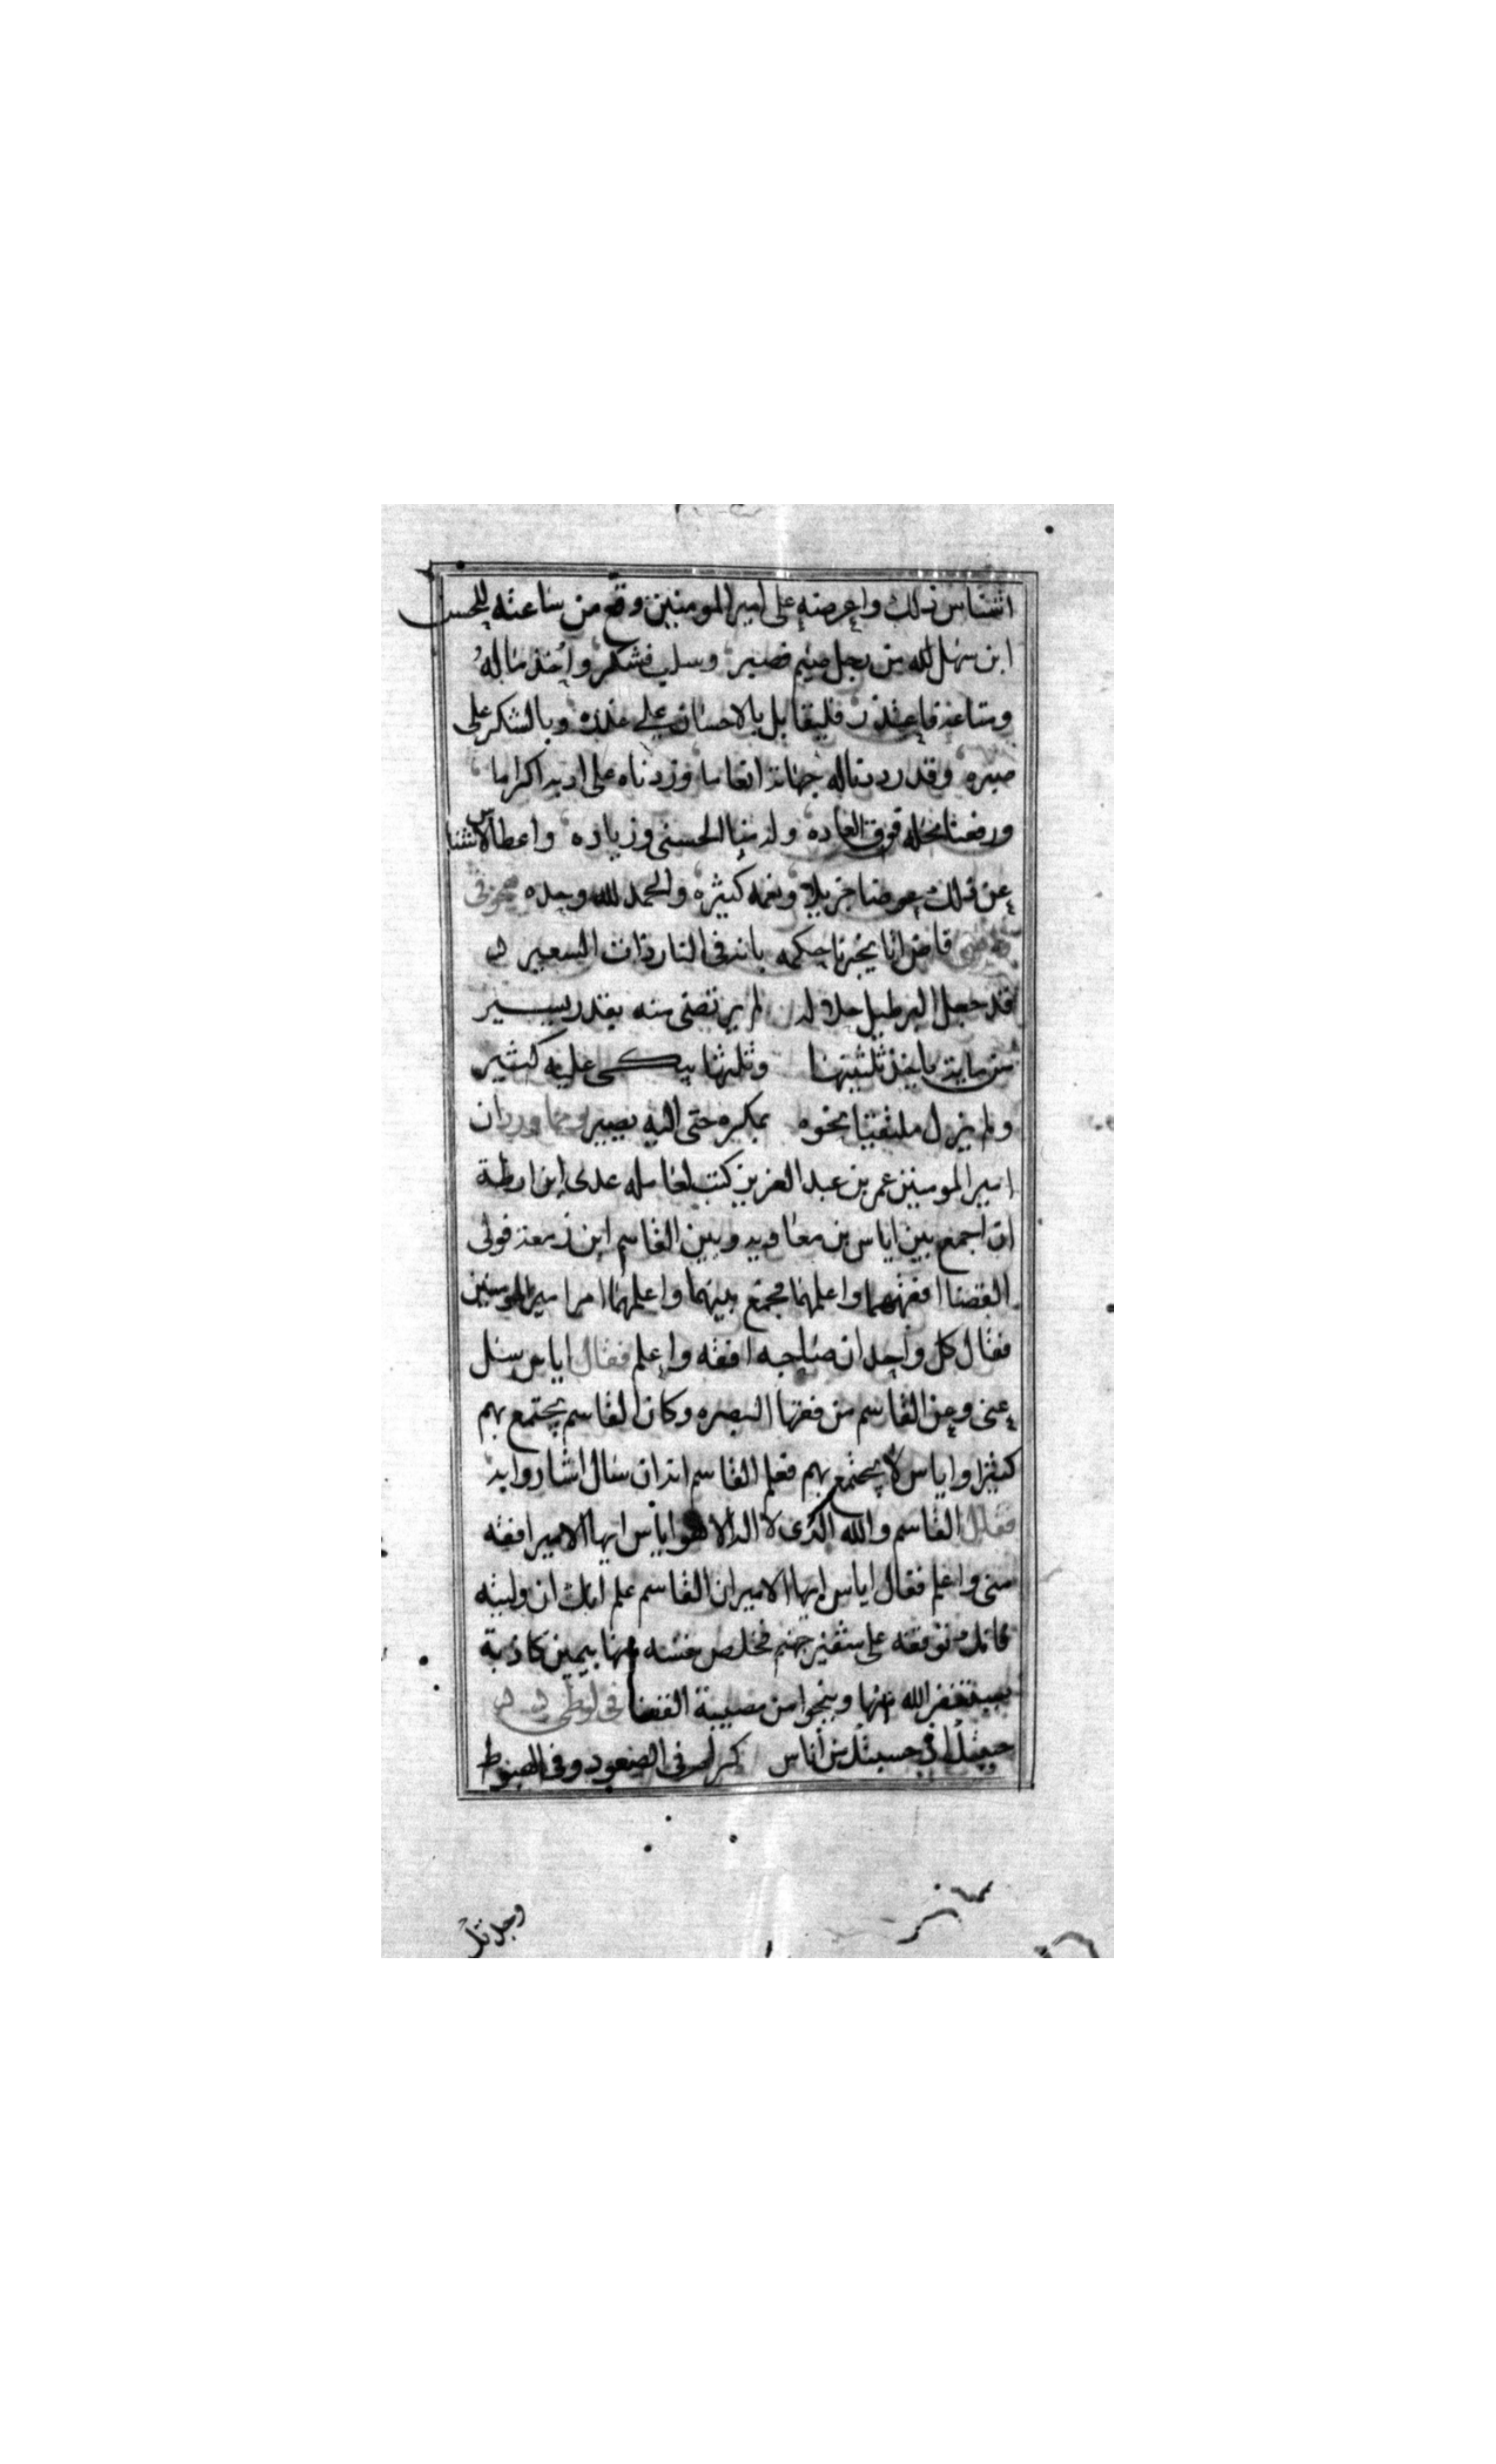 اشناس ذلك واعرضه على امير المومنين وقع من ساعته للحسن
ابن سهل لله من رجل ضيم فصبر وسلب فشكر واخذ ماله
وضياعه فاعتذر فليقابل بالاحسان علي عذره وبالشكر على
صبره وقد رددنا له جهاته انعاما وزدناه على ادبه اكراما
ورفعنا محله فوق العاده وله منا الحسنى وزياده واعطا لاشناس
عن ذلك عوضا جزيلا ونعمه كثيره والحمد لله وحده
قاض اتا يخبرنا حكمه بانه في النار ذات السعير
قد جعل البرطيل حلا له لم يرتضى منه بقدر يسير
من ماية ياخذ ثلثيها وثلثها يبكى عليه كثير
ولم يزل ملتفيتا نحوه بمكره حتى اليه يصير ومما ورد ان
امير المومنين عمر بن عبد العزيز كتب لعامله عدى ابن ارطة
ان اجمع بين اياس بن معاويه وبين القاسم ابن زمعه فولى
القضا افقههما واعلمهما فجمع بينهما واعلمهما امر امير المومنين
فقال كل واحد ان صاحبه افقه واعلم فقال اياس سل
عني وعن القاسم من فقها البصره وكان القاسم يجتمع بهم
كثيرا واياس لا يجتمع بهم فعلم القاسم انه ان سال اشاروا به
فقال القاسم والله الذى لا اله الا هو اياس ايها الامير افقه
منى واعلم فقال اياس ايها الامير ان القاسم علم انك ان وليته
فانك توقفه على شفير جهنم فخلص نفسه منها بيمين كاذبة
يستغفر الله منها وينجوا من مصيبة القضا
حبثك في حسبتك من اناس كرام في الصعود وفي الهبوط